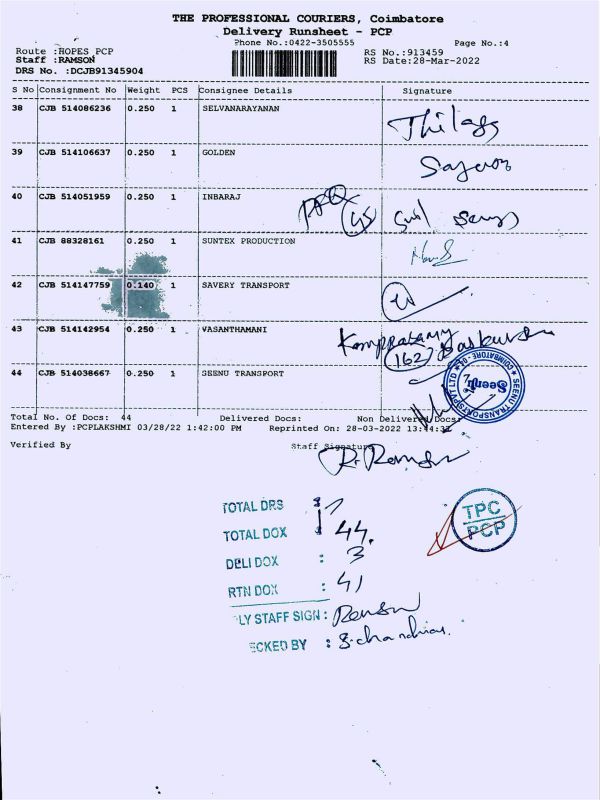 THE PROFESSIONAL COURIERS, Coimbatore
Delivery Runsheet - PCP
Phone No.:0422-3505555 Page No.:4
Route :HOPES PCP RS No.:913459
Staff :RAMSON RS Date:28-Mar-2022
DRS No. :DCJB91345904
S No Consignment No Weight PCS Consignee Details Signature
38 CJB 514086236 0.250 1 SELVANARAYANAN
39 CJB 514106637 0.250 1 GOLDEN
40 CJB 514051959 0.250 1 INBARAJ
41 CJB 88328161 0.250 1 SUNTEX PRODUCTION
42 CJB 514147759 0.140 1 SAVERY TRANSPORT
43 CJB 514142954 0.250 1 VASANTHAMANI
(162)
44 CJB 514038667 0.250 1 SEENU TRANSPORT
SEENU TRANSPORTS PVT LTD COIMBATORE
Seenu
Total No. Of Docs: 44 Delivered Docs: Non Delivery Docs:
Entered By :PCPLAKSHMI 03/28/22 1:42:00 PM Reprinted On: 28-03-2022 13:44:31
Verified By Staff Signature
R. Ramson
TOTAL DRS : 1
TOTAL DOX : 44.
DELI DOX : 3
RTN DOX : 41
LY STAFF SIGN :
ECKED BY :
TPC
PCP